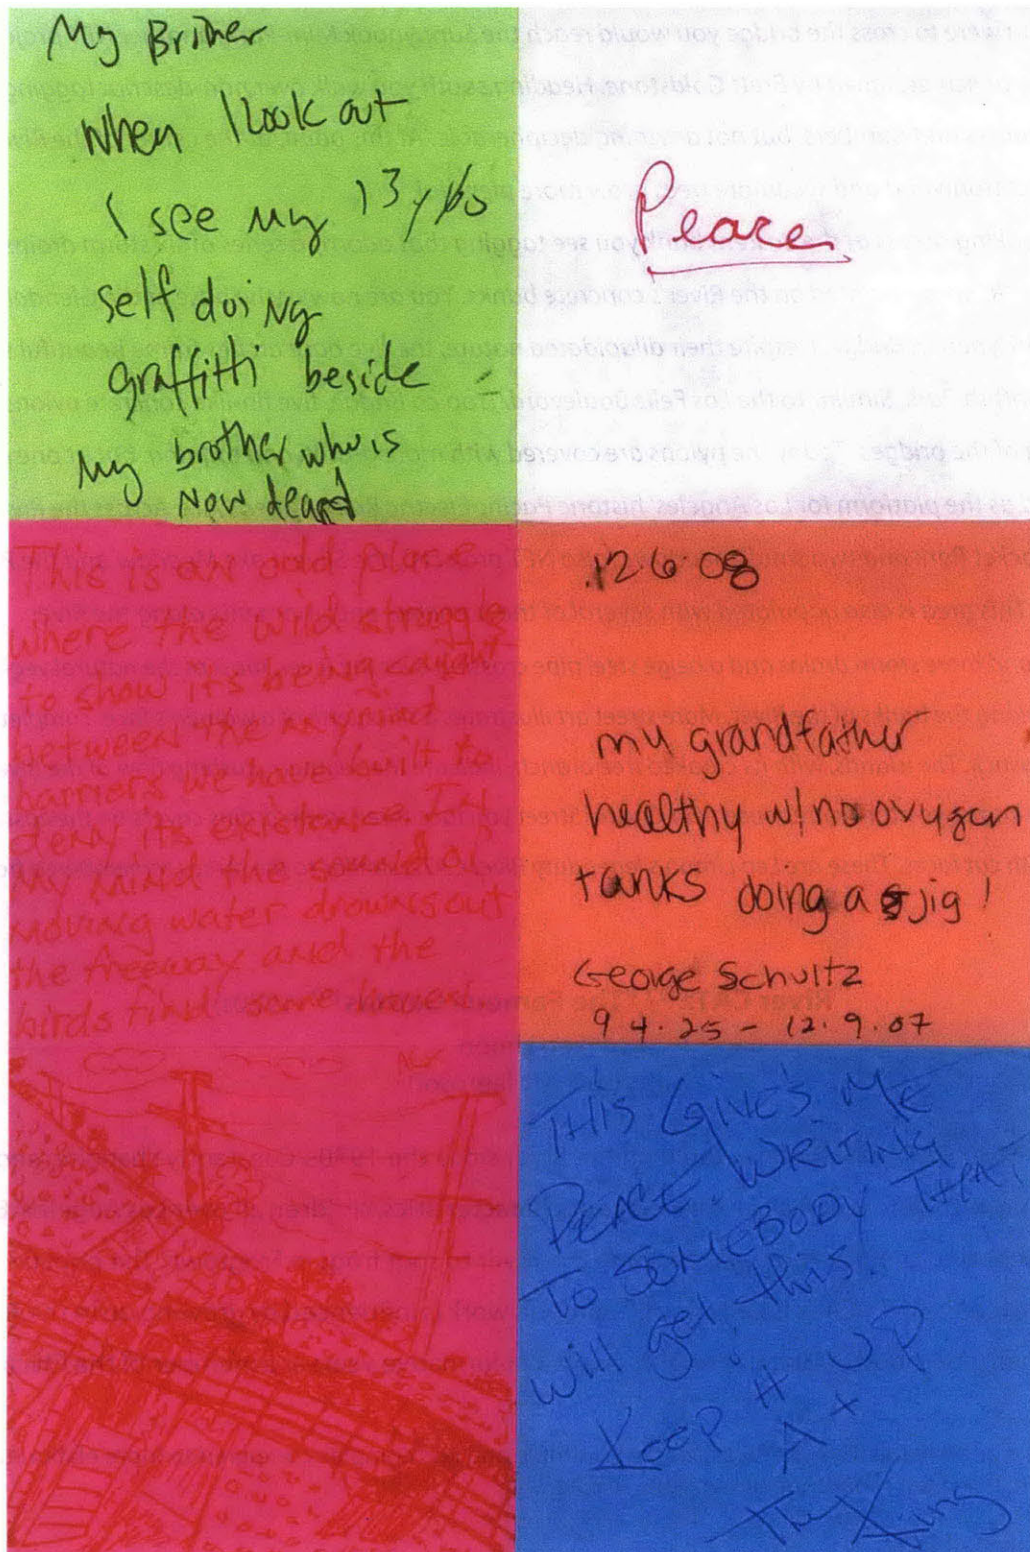 My Brother
When I look out
I see my 13 y/o
self doing
graffitti beside
my brother who is
now deard
Peace.
This is an odd place
where the wild struggle
to show its being caught
between the myriad
barriers we have built to
deny its existance In
my mind the sound of
moving water drowns out
the freeway and the
birds find some haven
12 6 08
my grandfather
healthy w/ no oxygen
tanks doing a jig!
George Schultz
9 4.25 - 12.9.07
THIS GIVES ME
PEACE WRITING
TO SOMEBODY THAT
will get this
Keep it UP
A+
The